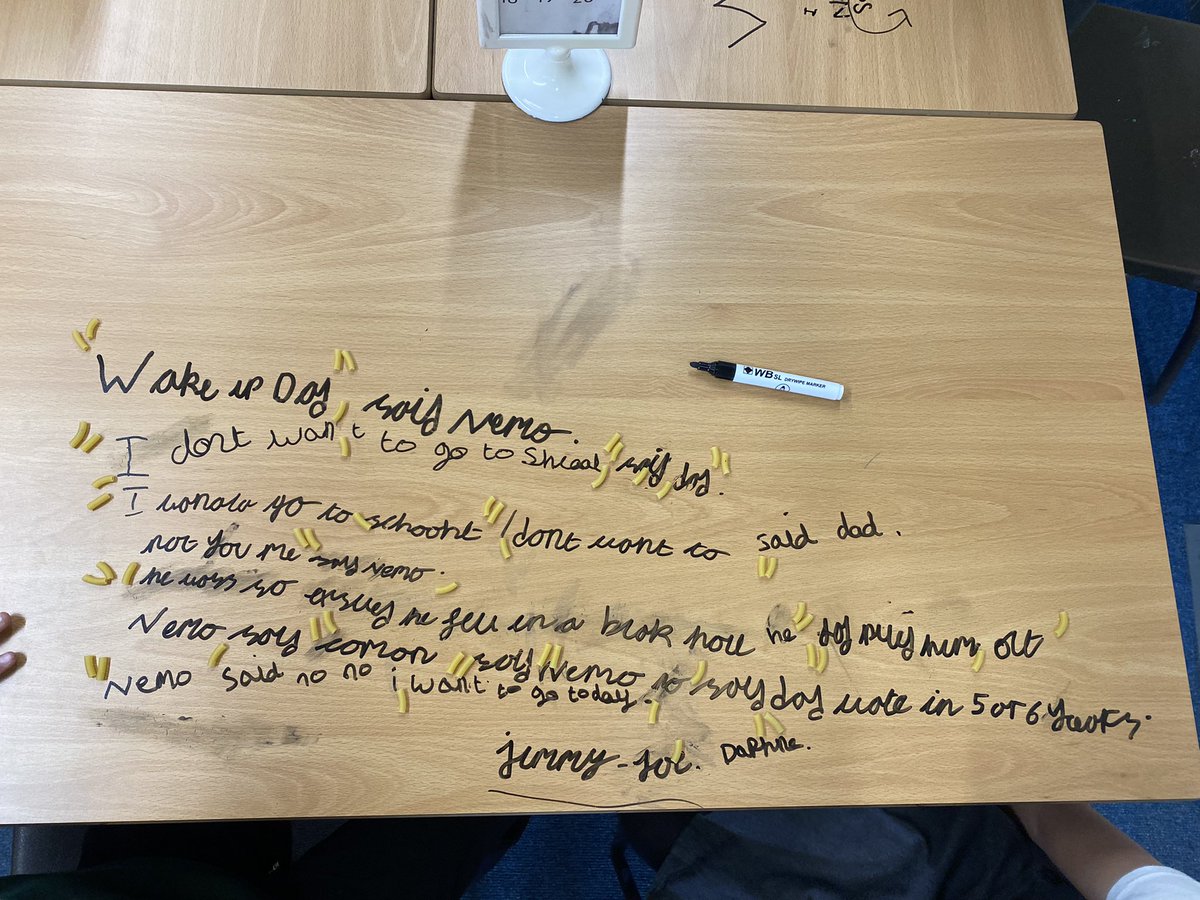 18 19 20
"Wake up Dad", said Nemo.
"I dont wan't to go to Shcool" said dad".
"I wonala go to schooht" I dont want to said dad.
not you me" said Nemo.
"he was so he fell in a he" dad him, out
Nemo said, "comon" said "Nemo no said dad wate in 5 or 6 years.
"Nemo said no no i want to go today.
jimmy-joe. Daphne.
WB SL DRYWIPE MARKER